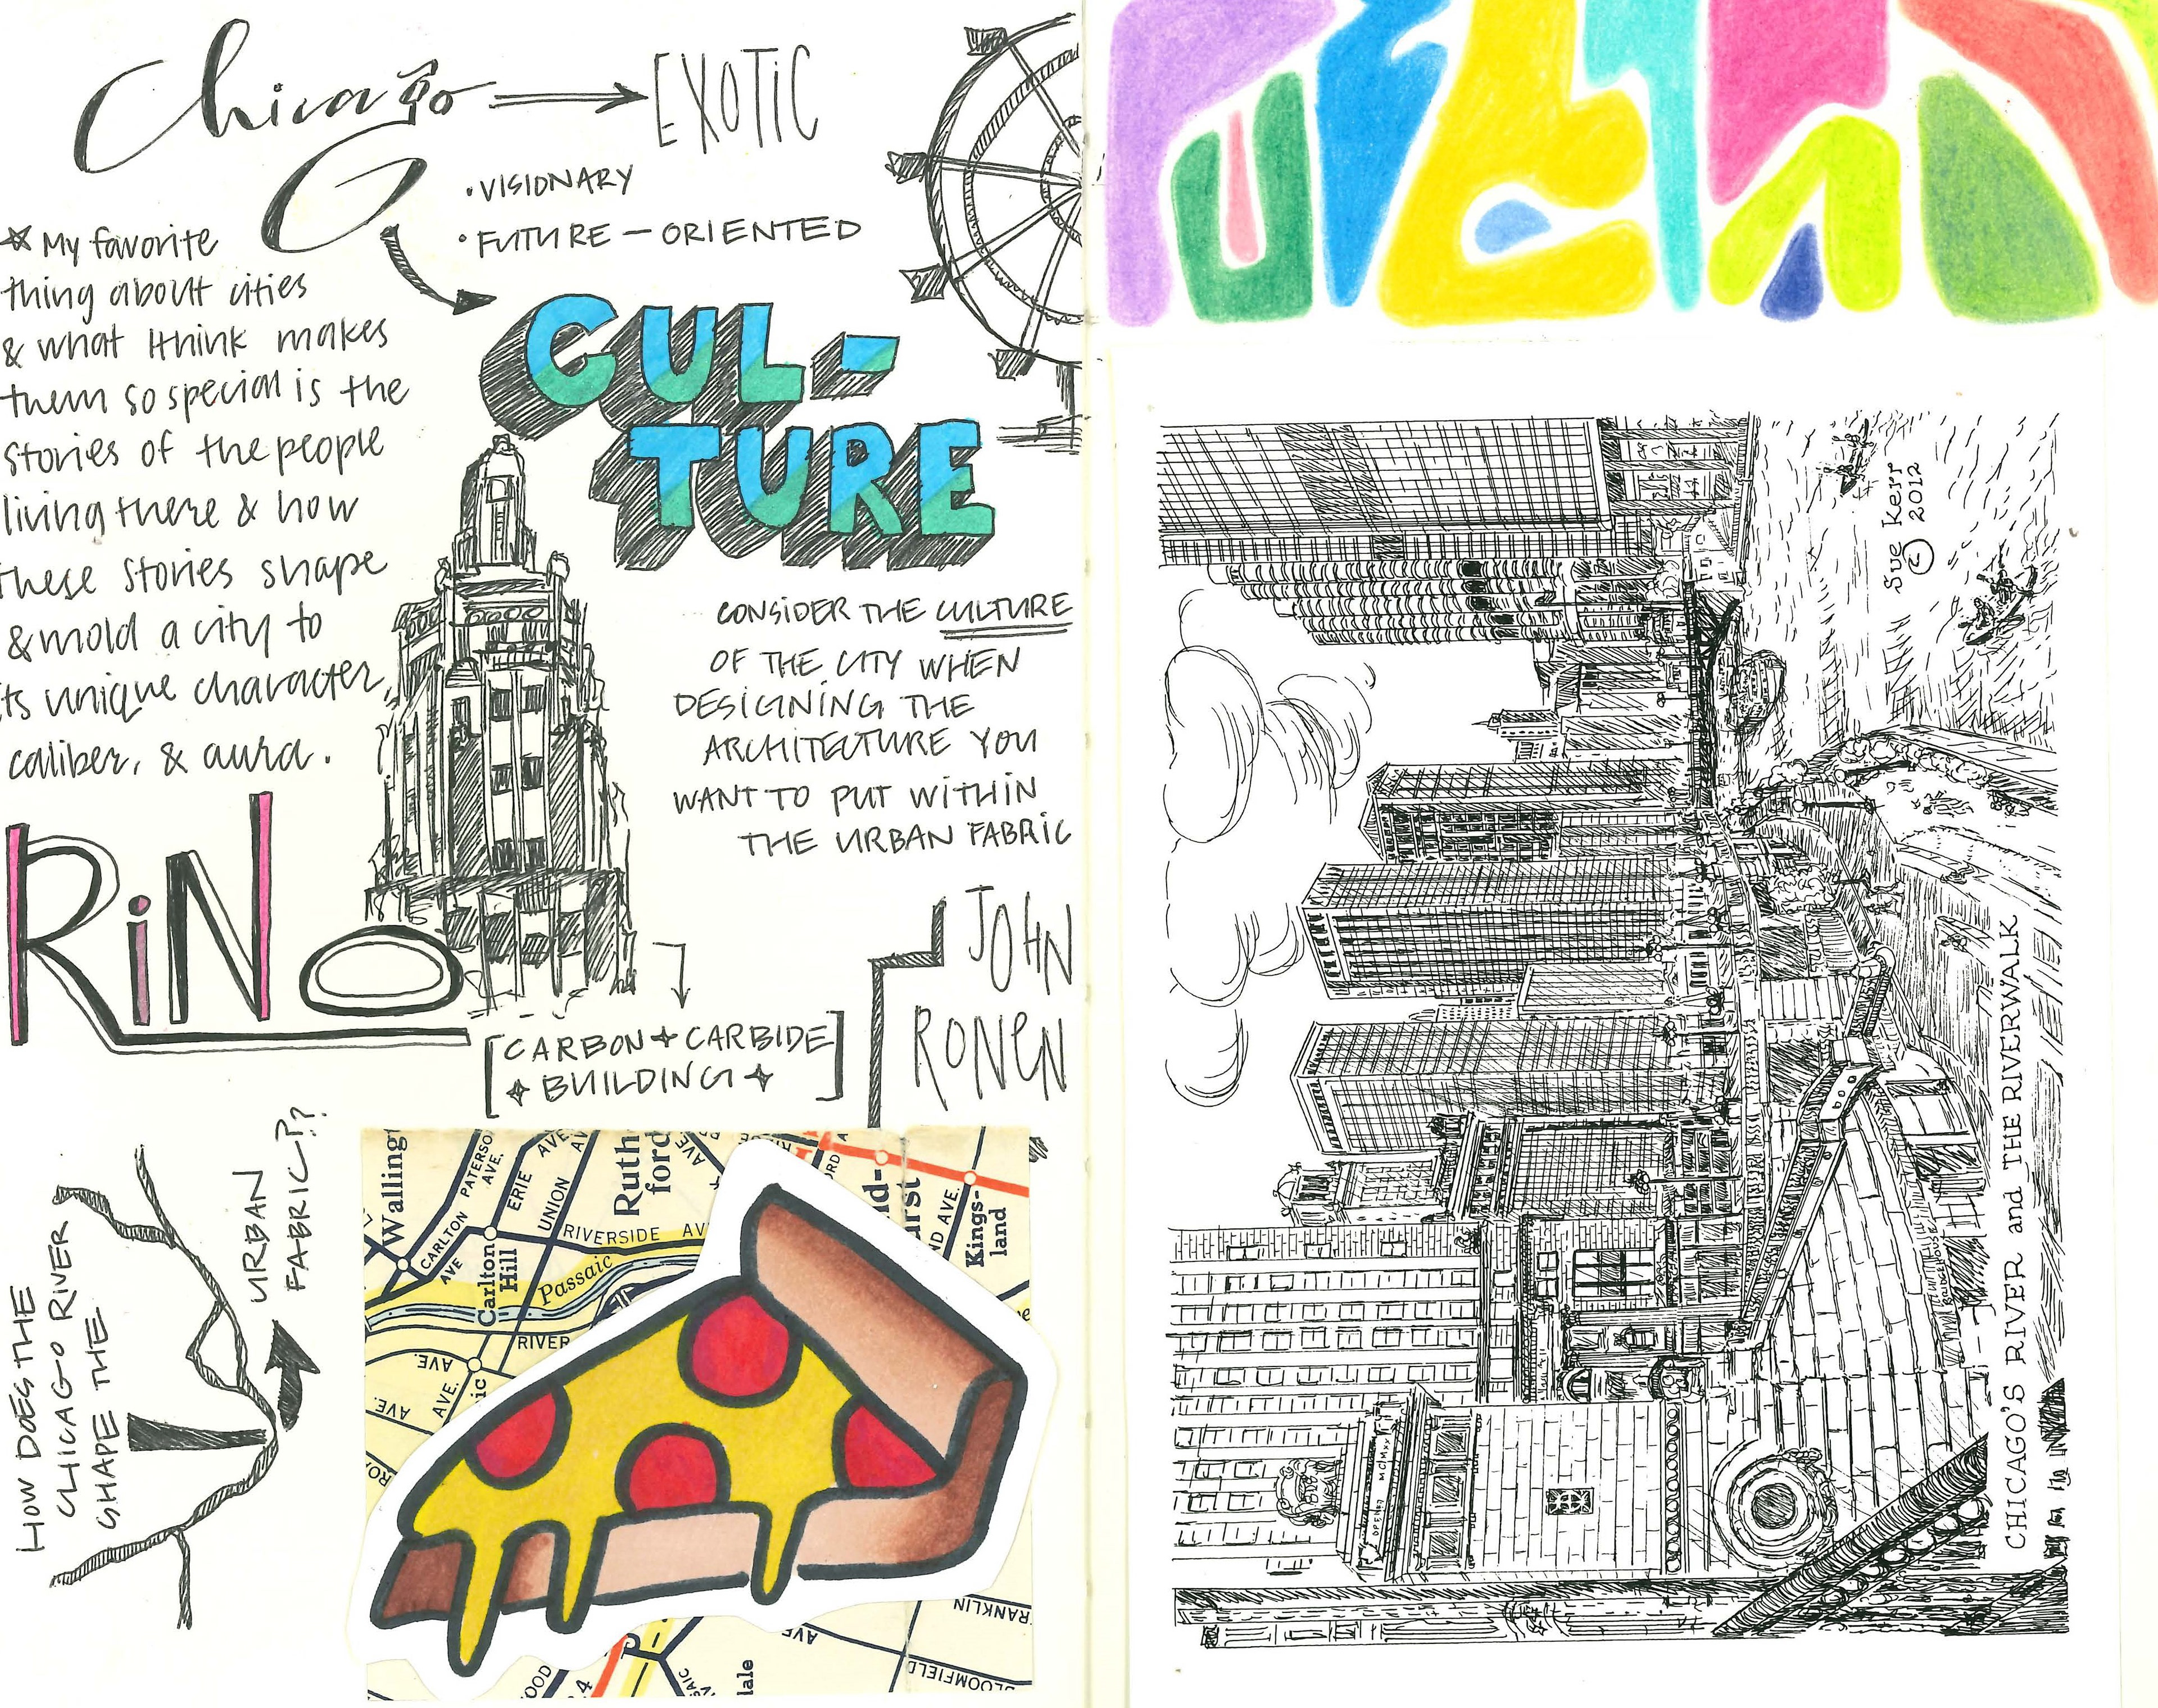 Chicago
EXOTIC
• VISIONARY
• FUTURE - ORIENTED
CUL-
TURE
My favorite
thing about cities
& what I think makes
them so special is the
stories of the people
living there & how
these stories shape
& mold a city to
its unique character,
caliber, & aura.
CONSIDER THE CULTURE
OF THE CITY WHEN
DESIGNING THE
ARCHITECTURE YOU
WANT TO PUT WITHIN
THE URBAN FABRIC
RiNo
[CARBON + CARBIDE
BUILDING]
JOHN
RONEN
HOW DOES THE
CHICAGO RIVER
SHAPE THE
URBAN
FABRIC??
Walling
CARLTON
AVE
PATERSO
AVE.
ERIE AVE
UNION AV
Ruth
ford
AVE
RIVERSIDE AV
Carlton
Hill
Passaic
RIVER
AVE.
AVE.
AVE.
ic
nd-
urst
ND AVE.
Kings-
land
AVE
RANKLIN
LOOMFIELD
OOD
lale
Sue Kerr
© 2012
OPENED MCMXX
BRIDGEHOUSE
CHICAGO'S RIVER and THE RIVERWALK